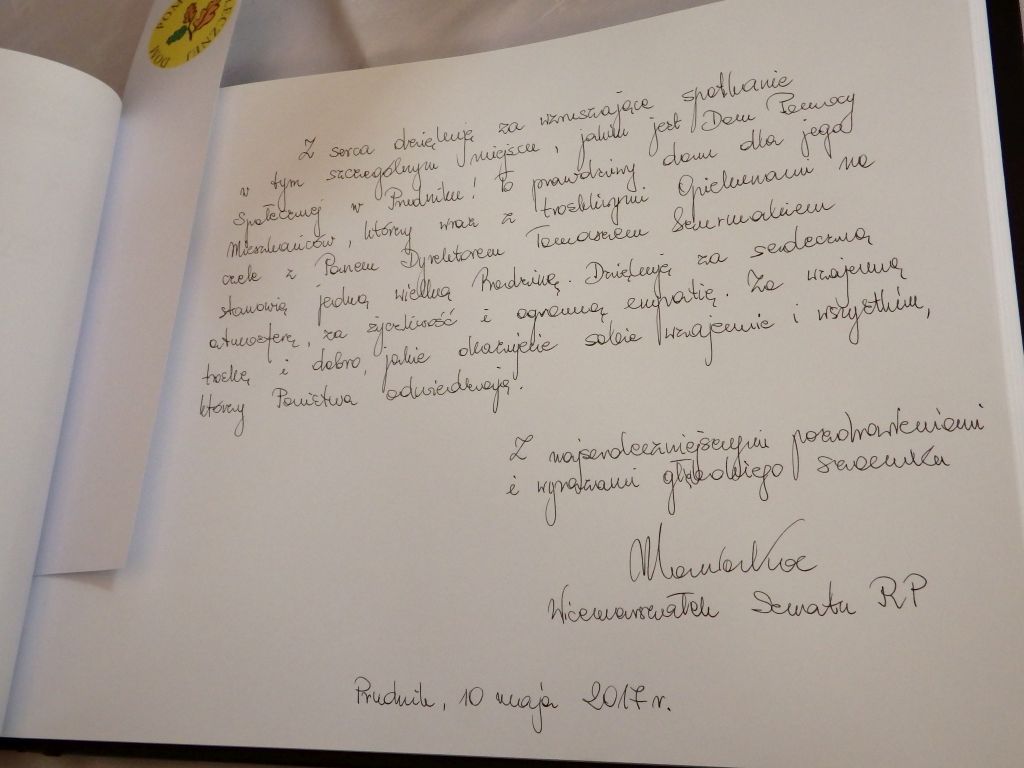 DOM POM ŁECZNEJ
Z serca dziękuję za wzruszające spotkanie
w tym szczególnym miejscu, jakim jest Dom Pomocy
Społecznej w Prudniku! To prawdziwy dom dla jego
Mieszkańców, którzy wraz z troskliwymi Opiekunami na
czele z Panem Dyrektorem Tomaszem
stanowią jedną wielką Rodzinę. Dziękuję za serdeczną
atmosferę, za życzliwość i ogromną empatię. Za wzajemną
troskę i dobro, jakie okazujecie sobie wzajemnie i wszystkim,
którzy Państwa odwiedzają.
Z najserdeczniejszymi pozdrowieniami
i wyrazami głębokiego szacunku
Wicemarszałek Senatu RP
Prudnik, 10 maja 2017 r.